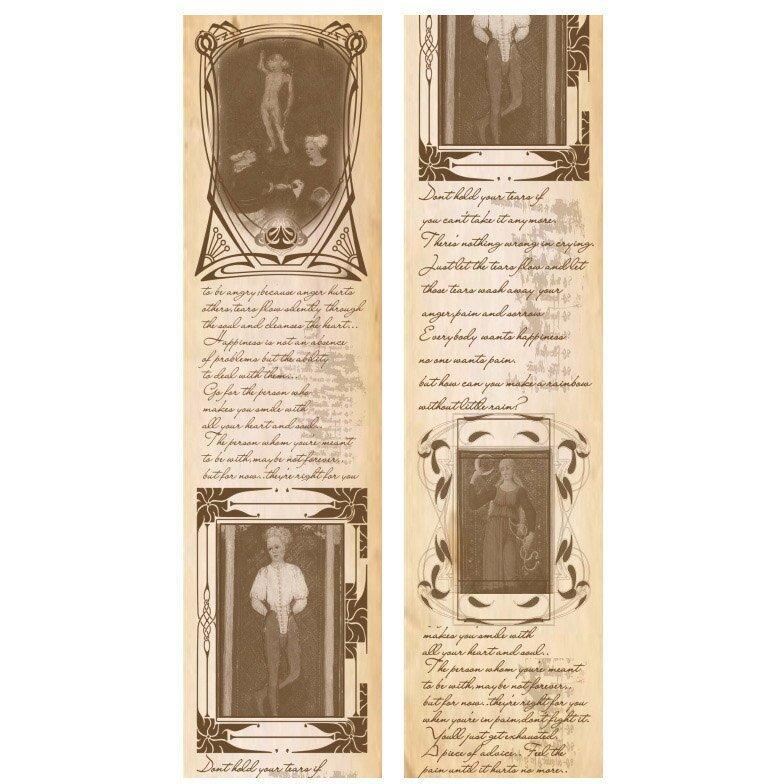 to be angry,because anger hurts
others,tears flow silently through
the soul and cleanses the heart...
Happiness is not an absence
of problems but the ability
to deal with them...
Go for the person who
makes you smile with
all your heart and soul..
The person whom youre meant
to be with,maybe not forever..
but for now..they're right for you
Dont hold your tears if
Dont hold your tears if
you cant take it anymore.
Theres nothing wrong in crying.
Just let the tears flow and let
those tears wash away your
anger,pain and sorrow
Everybody wants happiness
no one wants pain.
but how can you make a rainbow
without little rain?
makes you smile with
all your heart and soul..
The person whom youre meant
to be with,maybe not forever..
but for now..they're right for you
when you're in pain,dont fight it.
Youll just get exhausted.
A piece of advice.. Feel the
pain until it hurts no more.